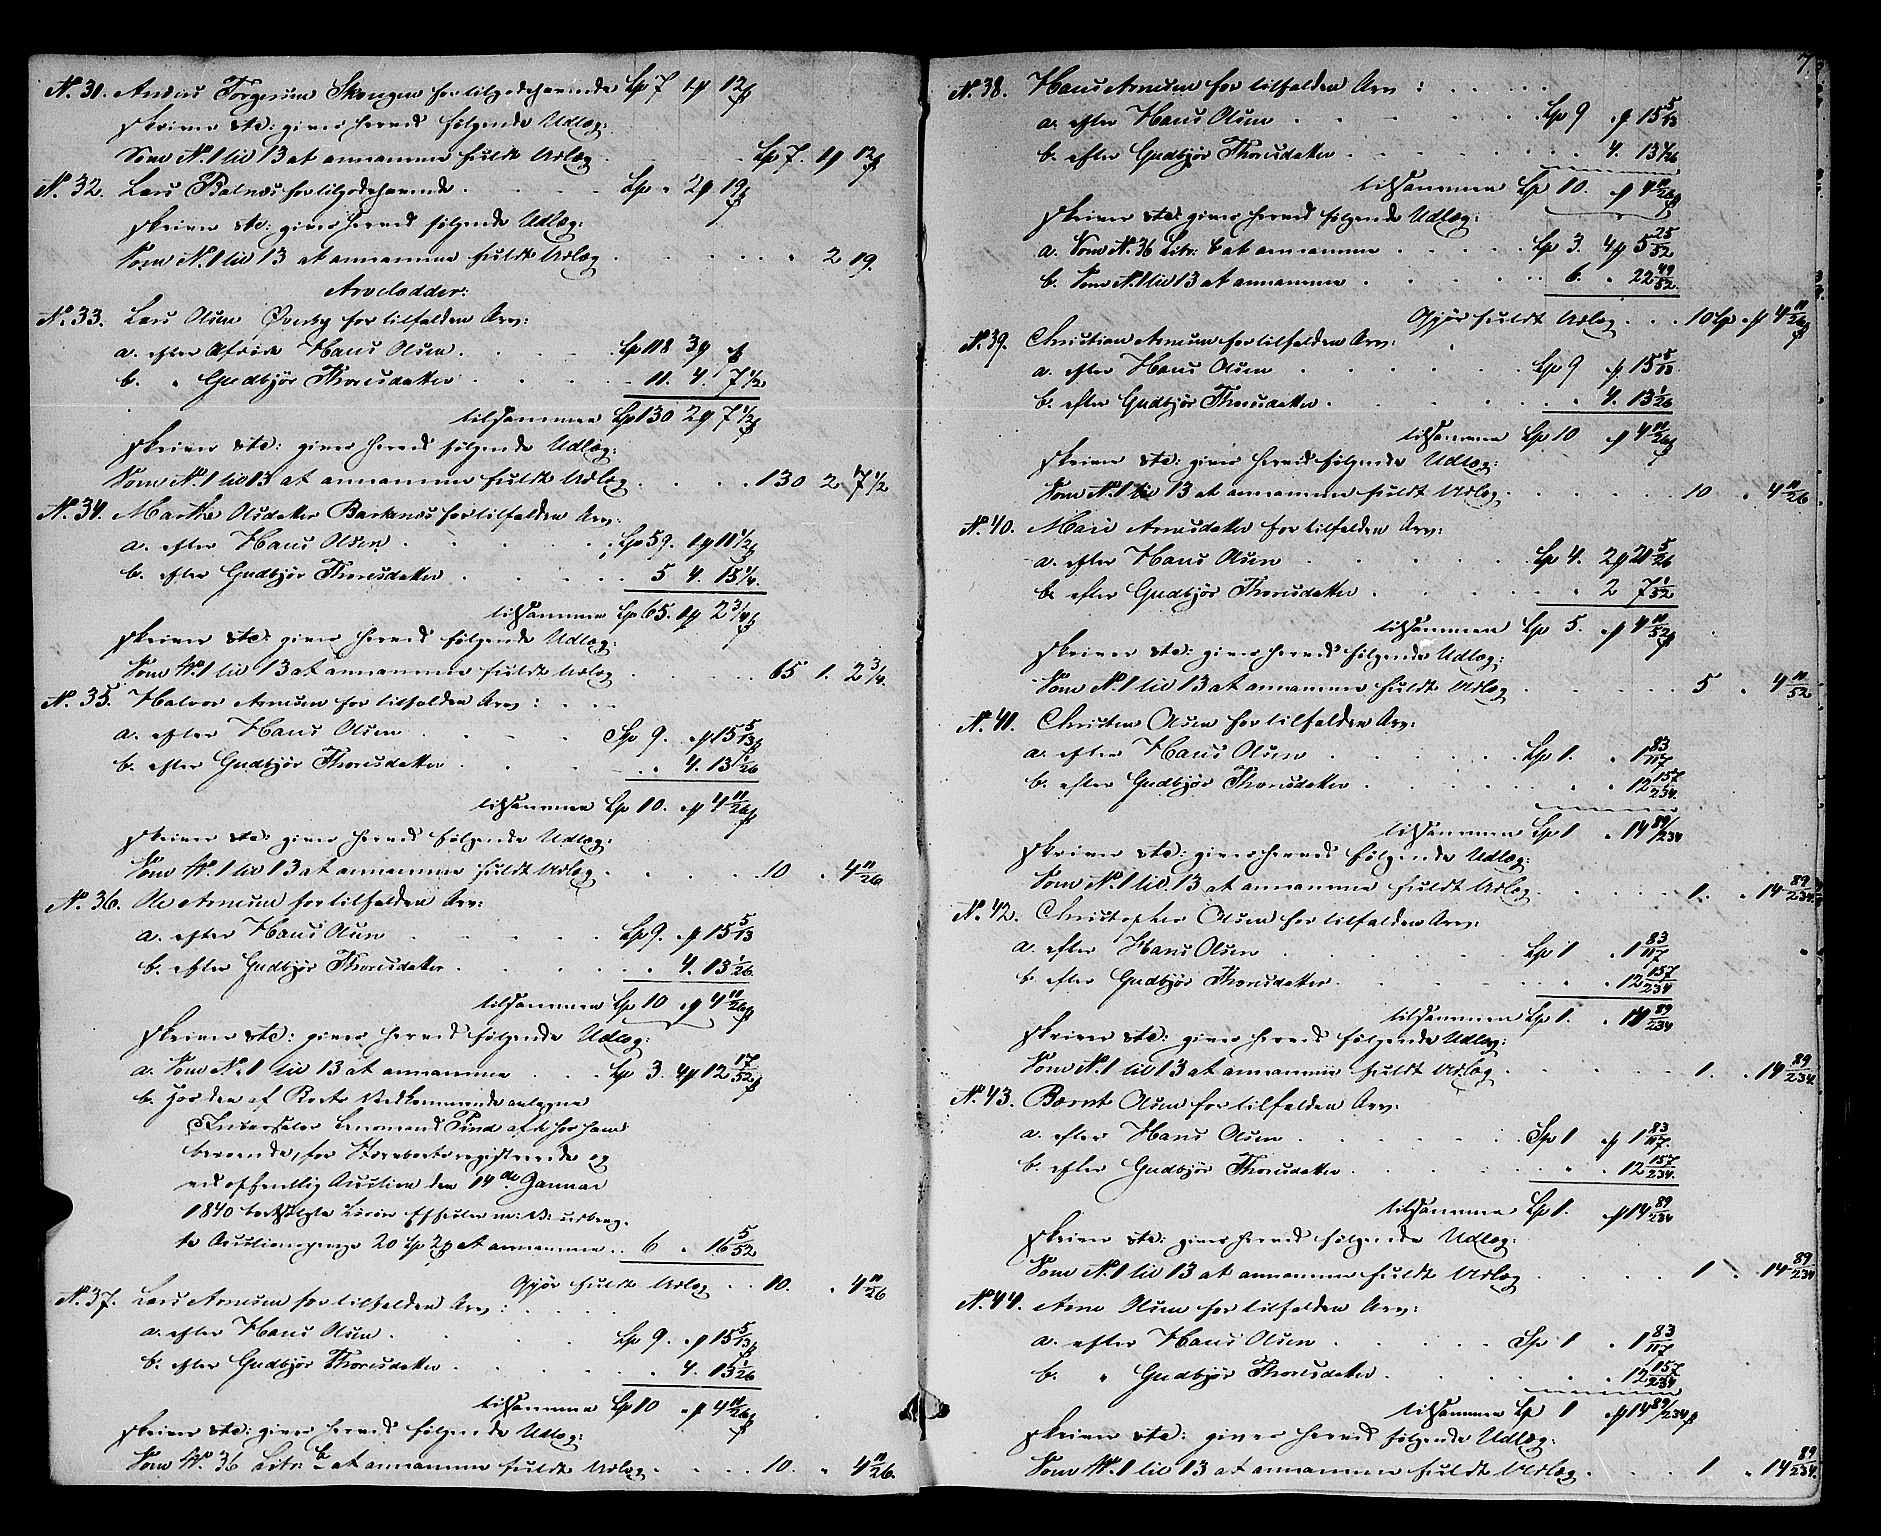 N. 31. Anders Torgersen Skongen for tilgodehavende Sp 7 1 12 ß
skriver etc: gives herved følgende Udlæg:
Som N. 1 til 13 at annamme fuldt Udlæg . . . Sp 7. 1 12 ß
N. 32. Lars Balnes for tilgodehavende . . . Sp „ 2 19 ß
skriver etc: gives herved følgende Udlæg:
Som N. 1 til 13 at annamme fuldt Udlæg . . . „ 2 19.
Arvelodder:
N. 33. Lars Olsen Øverby for tilfalden Arv:
a. efter Afdøde Hans Olsen . . . Sp 118 3 „ ß
b. „ Gudbjør Thoresdatter . . . 11. 4. 7 1/2
tilsammen Sp 130 2 7 1/2 ß
skriver etc: gives herved følgende Udlæg:
Som N. 1 til 13 at annamme fuldt Udlæg . . . 130 2 7 1/2
N. 34. Marthe Olsdatter Barknes for tilfalden Arv:
a. efter Hans Olsen . . . Sp 59. 1 11 1/2 ß
b. efter Gudbjør Thoresdatter . . . 5 4. 15 1/4.
tilsammen Sp 65. 1 2 3/4 ß
skriver etc: gives herved følgende Udlæg:
Som N. 1 til 13 at annamme fuldt Udlæg . . . 65 1. 2 3/4.
N. 35. Halvor Arnesen for tilfalden Arv: . . .
a. efter Hans Olsen . . . Sp 9. „ 15 5/13 ß
b. efter Gudbjør Thoresdatter . . . „ 4. 13 1/26
tilsammen Sp 10. „ 4 11/26 ß
skriver etc: gives herved følgende Udlæg:
Som N. 1 til 13 at annamme fuldt Udlæg . . . 10 „ 4 11/26
N. 36. Ole Arnesen for tilfalden Arv:
a. efter Hans Olsen . . . Sp 9. „ 15 5/13
b. efter Gudbjør Thoresdatter . . . „ 4. 13 1/26.
tilsammen Sp 10 „ 4 11/26 ß
skriver etc: gives herved følgende Udlæg:
a. Som N. 1 til 13 at annamme . . . Sp 3. 4 12 17/52 ß
b. Hos den af Rette Vedkommende
Lensmand Pind af de hos ham
beroende, for registrerede og
ved offentlig Auction den 14de Januar
1840 bortsolgte Løsøre Effecter m: V: udbrag-
te Auctionspenge 20 Sp 2 at annamme . . 6 „ 16 5/52
Gjør fuldt Udlæg . . 10. „ 4 11/26
N. 37. Lars Arnesen for tilfalden Arv: . . .
a. efter Hans Olsen . . . Sp 9. „ 15 5/13 ß
b. efter Gudbjør Thoresdatter . . . „ 4. 13 1/26
tilsammen Sp 10 „ 4 11/26 ß
skriver etc: gives herved følgende Udlæg:
Som N. 36 Litr. b at annamme fuldt Udlæg . . . 10. „ 4 11/26.
7.
N. 38. Hans Arnesen for tilfalden Arv: . . .
a. efter Hans Olsen . . . Sp 9 „ 15 5/13
b. efter Gudbjør Thoresdatter . . . 4. 13 1/26
tilsammen Sp 10. „ 4 11/26 ß
skriver etc: gives herved følgende Udlæg:
a. Som N. 36 Litr. b at annamme . . . Sp 3. 4 5 25/52
b. Som N. 1 til 13 at annamme . . . 6. „ 22 49/52.
Gjør fuldt Udlæg . . . 10 Sp „ 4 11/26 ß
N. 39. Christian Arnesen for tilfalden Arv:
a. efter Hans Olsen . . . Sp 9 „ 15 5/13.
b. efter Gudbjør Thoresdatter . . . „ 4. 13 1/26
tilsammen Sp 10 „ 4 11/26 ß
skriver etc: gives herved følgende Udlæg:
Som N. 1 til 13 at annamme fuldt Udlæg . . . 10 „ 4 11/26
N. 40. Mari Arnesdatter for tilfalden Arv:
a. efter Hans Olsen . . . Sp 4. 2 21 5/26
b. efter Gudbjør Thoresdatter . . . „ 2 7 1/52
tilsammen Sp 5. „ 4 11/52 ß
skriver etc: gives herved følgende Udlæg:
Som N. 1 til 13 at annamme fuldt Udlæg . . . 5 „ 4 11/52
N. 41. Christen Olsen for tilfalden Arv:
a. efter Hans Olsen . . . Sp 1. „ 1 83/117
b. efter Gudbjør Thoresdatter . . . „ „ 12 157/234.
tilsammen Sp 1 „ 14 89/234
skriver etc: gives herved følgende Udlæg:
Som N. 1 til 13 at annamme fuldt Udlæg . . . 1. „ 14 89/234.
N. 42. Christopher Olsen for tilfalden Arv:
a. efter Hans Olsen . . . Sp 1 „ 1 83/117
b. efter Gudbjør Thoresdatter . . . „ „ 12 157/234
tilsammen Sp 1. „ 14 89/234
skriver etc: gives herved følgende Udlæg:
Som N. 1 til 13 at annamme fuldt Udlæg . . . 1. „ 14 89/234.
N. 43. Bernt Olsen for tilfalden Arv:
a. efter Hans Olsen . . . Sp 1 „ 1 83/117.
b. efter Gudbjør Thoresdatter . . . „ „ 12 157/234.
tilsammen Sp 1. „ 14 89/234
skriver etc: gives herved følgende Udlæg:
Som N. 1 til 13 at annamme fuldt Udlæg . . . 1 „ 14 89/234
N. 44. Arne Olsen for tilfalden Arv:
a. efter Hans Olsen . . . Sp 1 „ 1 83/117
b. „ Gudbjør Thoresdatter . . . „ 12 157/234
tilsammen Sp 1 „ 14 89/234 ß
skriver etc: gives herved følgende Udlæg:
Som N. 1 til 13 at annamme fuldt Udlæg . . . 1 „ 14 89/234.